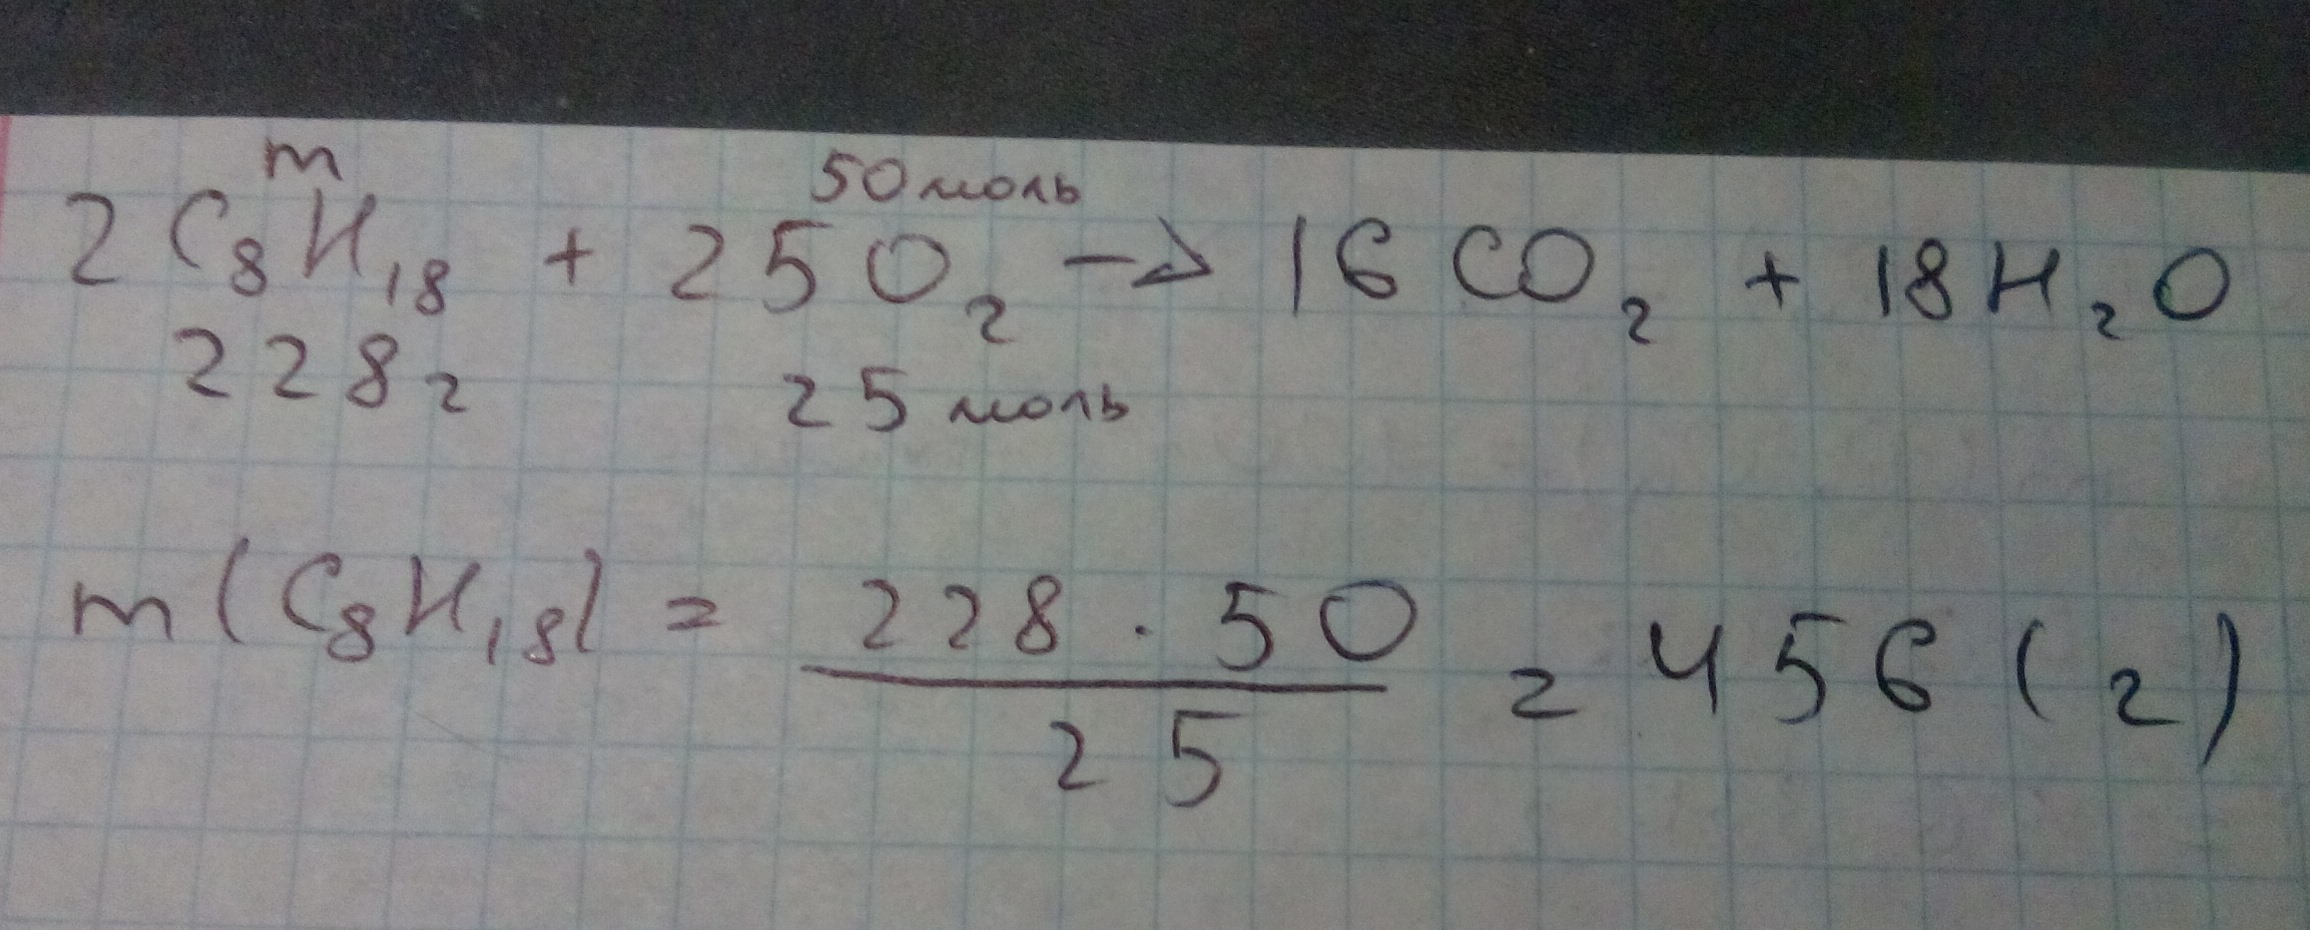 m 50 моль
2C₈H₁₈ + 25O₂ → 16CO₂ + 18H₂O
228г 25 моль
m(C₈H₁₈) = 228 · 50 / 25 = 456 (г)